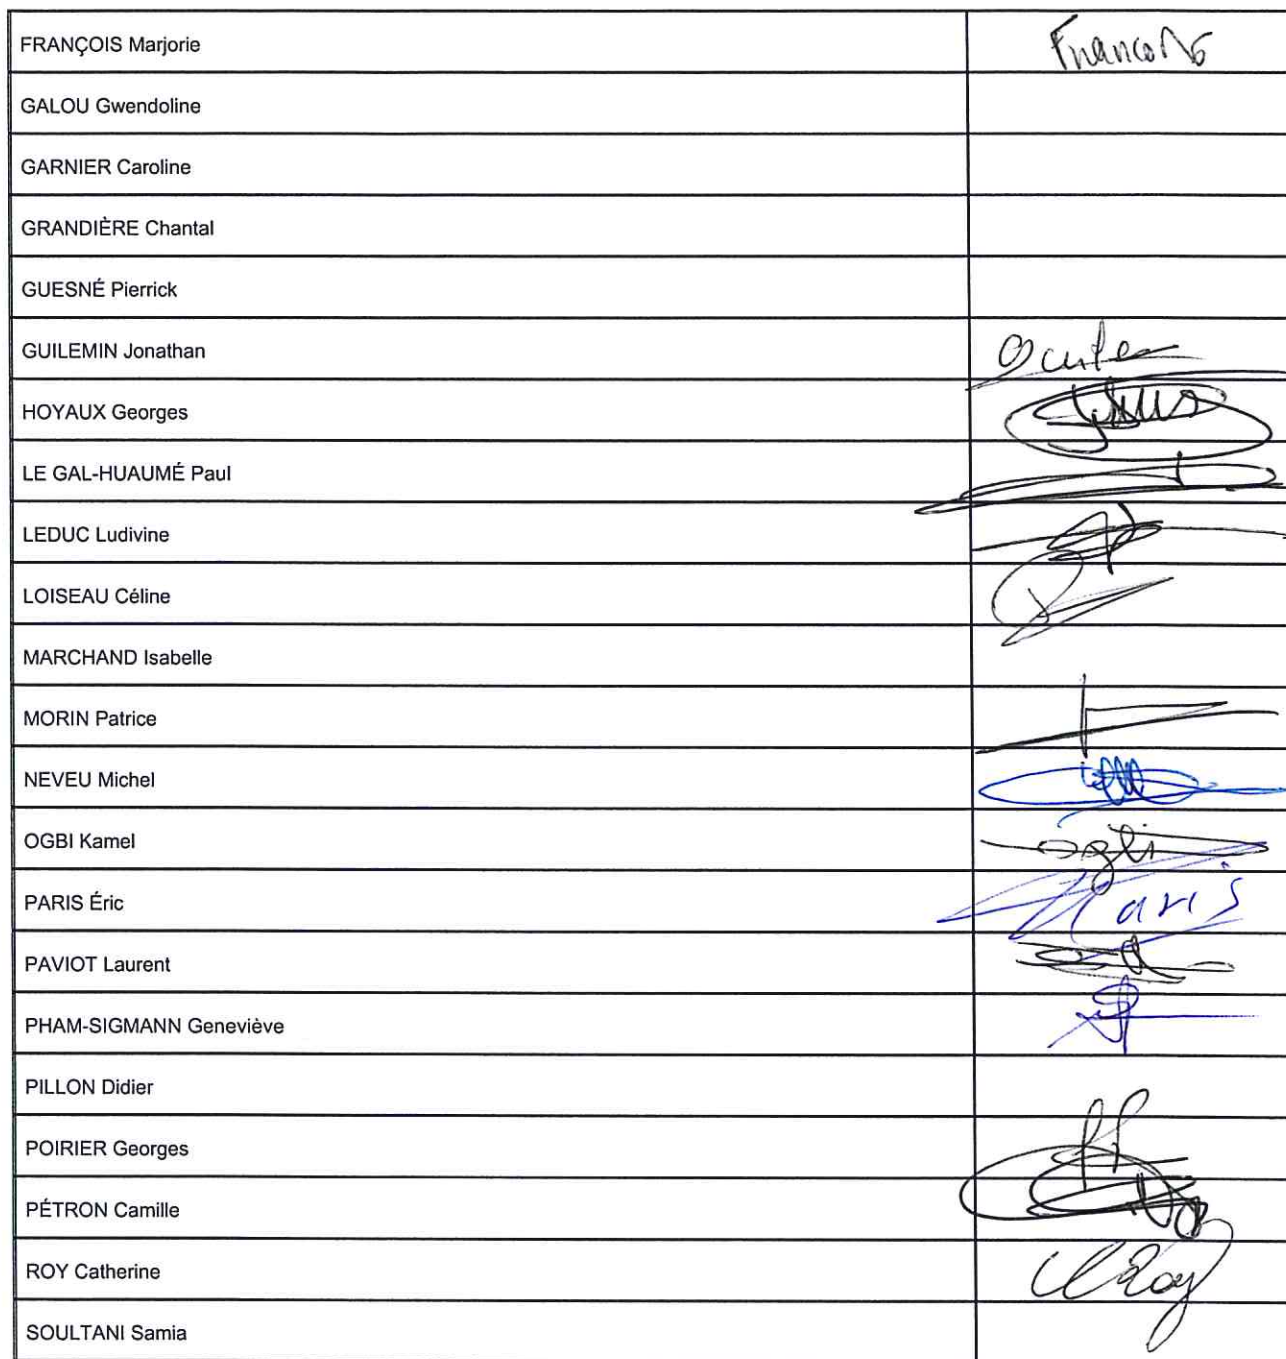 FRANÇOIS Marjorie
GALOU Gwendoline
GARNIER Caroline
GRANDIÈRE Chantal
GUESNÉ Pierrick
GUILEMIN Jonathan
HOYAUX Georges
LE GAL-HUAUMÉ Paul
LEDUC Ludivine
LOISEAU Céline
MARCHAND Isabelle
MORIN Patrice
NEVEU Michel
OGBI Kamel
PARIS Éric Paris
PAVIOT Laurent
PHAM-SIGMANN Geneviève
PILLON Didier
POIRIER Georges
PÉTRON Camille
ROY Catherine
SOULTANI Samia